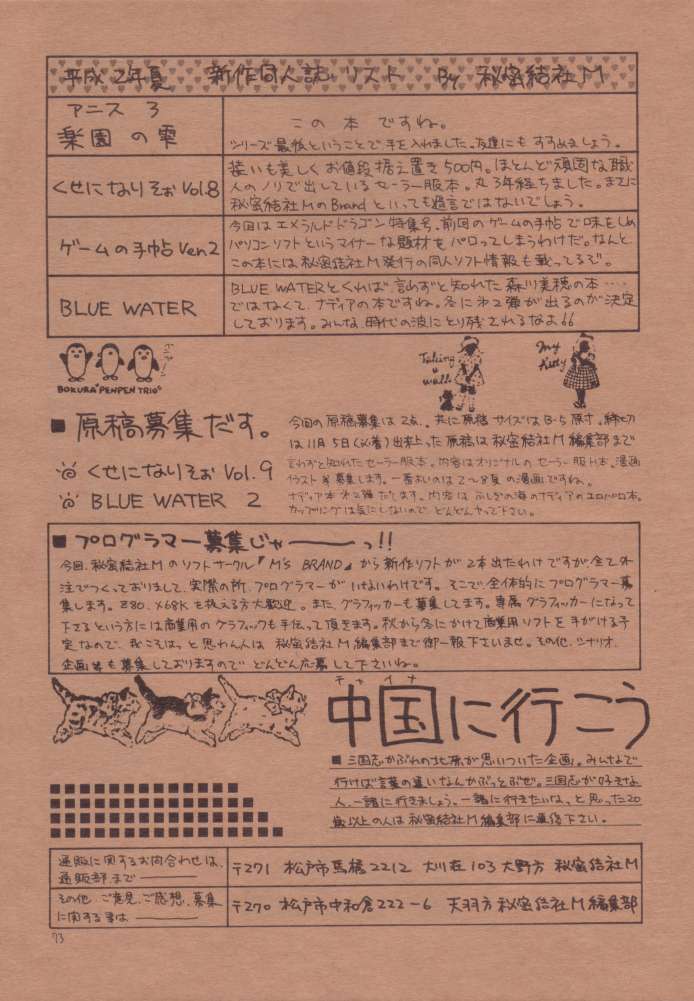 平成2年夏 新作同人誌リスト By 秘密結社M
アニス 3
楽園の雫
この本ですね。
シリーズ最後ということで手を入れました。友達にもすすめましょう。
くせになりそぉ Vol.8
装いも美しくお値段据え置き500円。ほとんど頑固な職
人のノリで出しているセーラー服本。丸3年経ちました。まさに
秘密結社MのBrandといっても過言ではないでしょう。
ゲームの手帖 Ver.2
今回はエメラルドドラゴン特集号。前回のゲームの手帖で味をしめ
パソコンソフトというマイナーな題材をパロってしまうわけだ。なんと
この本には秘密結社M発行の同人ソフト情報も載ってるぞ。
BLUE WATER
BLUE WATERとくれば、言わずと知れた森川美穂の本‥‥
ではなくて、ナディアの本ですね。冬にオ2弾が出るのが決定
しております。みんな時代の波にとり残されるなよ
BOKURA "PENPEN TRIO"
Taking a walk
My Kitty
■ 原稿募集だす。
くせになりそぉ Vol.9
BLUE WATER 2
今回の原稿募集は2点。共に原稿サイズはB-5原寸。締切
は11月5日(必着)出来上った原稿は秘密結社M編集部まで
言わずと知れたセーラー服本。内容はオリジナルのセーラー服H本。漫画
イラスト等募集します。一番おいしいのは2〜8頁の漫画ですね。
ナディア本オ2弾だします。内容はふしぎの海のナディアのエロパロ本。
カップリングは気にしないので、どんどんやって下さい。
■ プログラマー募集じゃ――っ!!
今回、秘密結社Mのソフトサークル『M's BRAND』から新作ソフトが2本出たわけですが、全て外
注でつくっておりまして、実際の所、プログラマーがいないわけです。そこで、全体的にプログラマー募
集します。Z80、X68Kを扱える方大歓迎。また、グラフィッカーも募集してます。専属グラフィッカーになって
下さるという方には商業用のグラフィックも手伝って頂きます。秋から冬にかけて商業用ソフトを手がける予
定なので、我こそはっと思わん人は秘密結社M編集部まで御一報下さいませ。その他、シナリオ、
企画等も募集しておりますのでどんどん応募して下さいね。
チャイナ
中国に行こう
■ 三国志かぶれの北原が思いついた企画。みんなで
行けば言葉の違いなんかぶっとぶぜ。三国志が好きな
人、一諸に行きましょう。一諸に行きたいな、と思った20
歳以上の人は秘密結社M編集部に連絡下さい。
通販に関するお問合わせは、
通販部まで――――
〒271 松戸市馬橋2212 大川荘103 大野方 秘密結社M
その他、ご意見、ご感想、募集
に関する事は――――
〒270 松戸市中和倉222-6 天羽方 秘密結社M編集部
73